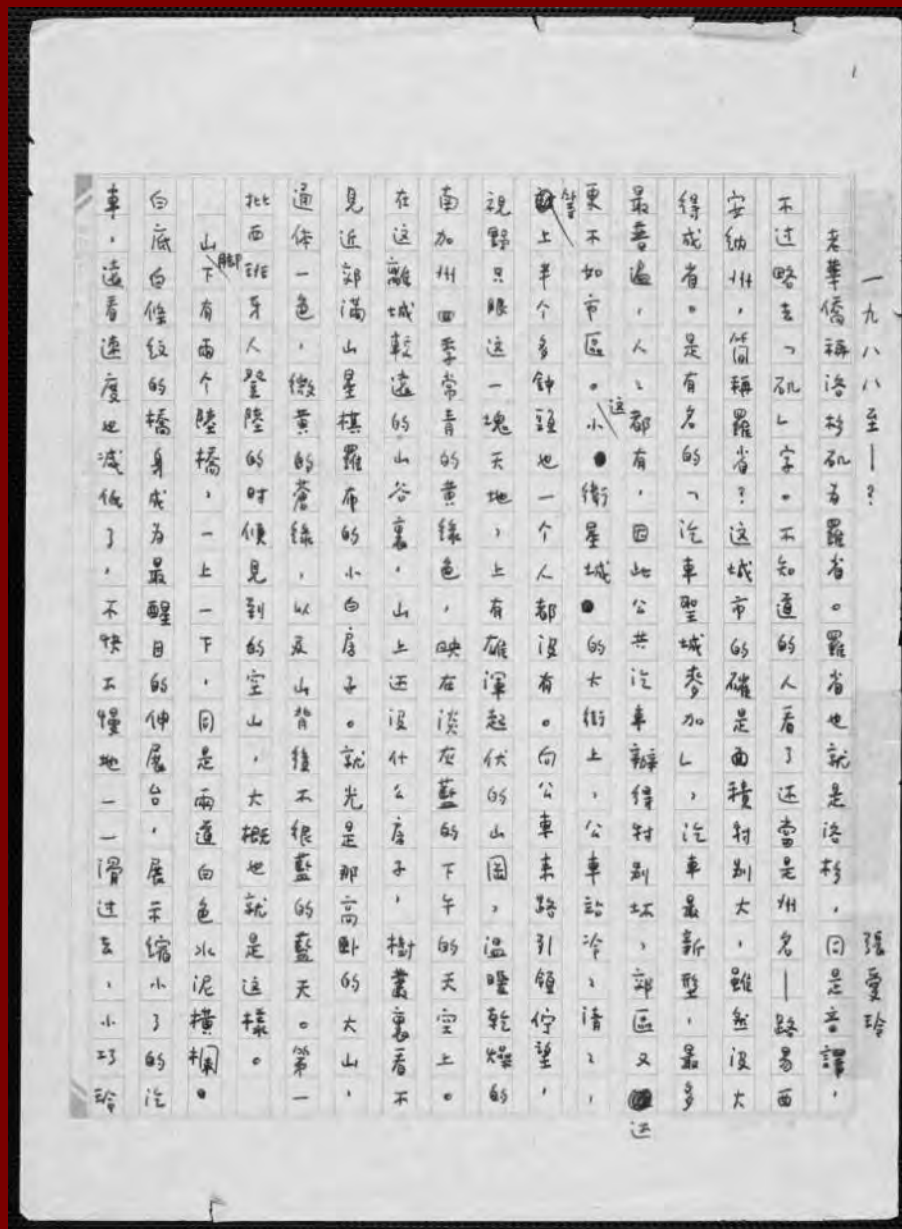 1
一九八八至—？　張愛玲
老華僑稱洛杉矶為羅省。羅省也就是洛杉，同是音譯，
不过略去「矶」字。不知道的人看了还當是州名—路易西
安納州，簡稱羅省？这城市的確是面積特别大，雖然没大
得成省。是有名的「汽車聖城麥加」，汽車最新型，最多
最普遍，人人都有，因此公共汽車辦得特别坏，郊區又还
更不如市區。这小衛星城的大街上，公車站冷冷清清，
等上半个多鐘頭也一个人都没有。向公車来路引領佇望，
視野只限这一塊天地，上有雄渾起伏的山岡，温暖乾燥的
南加州四季常青的黄綠色，映在淡灰藍的下午的天空上。
在这離城較遠的山谷裏，山上还没什么房子，樹叢裏看不
見近郊滿山星棋羅布的小白房子。就光是那高卧的大山，
通体一色，微黄的蒼綠，以及山背後不很藍的藍天。第一
批西班牙人登陸的时候見到的空山，大概也就是这樣。
山脚下有兩个陸橋，一上一下，同是兩道白色水泥橫欄。
白底白條紋的橋身成為最醒目的伸展台，展示缩小了的汽
車，遠看速度也減低了，不快不慢地一一滑过去，小巧玲